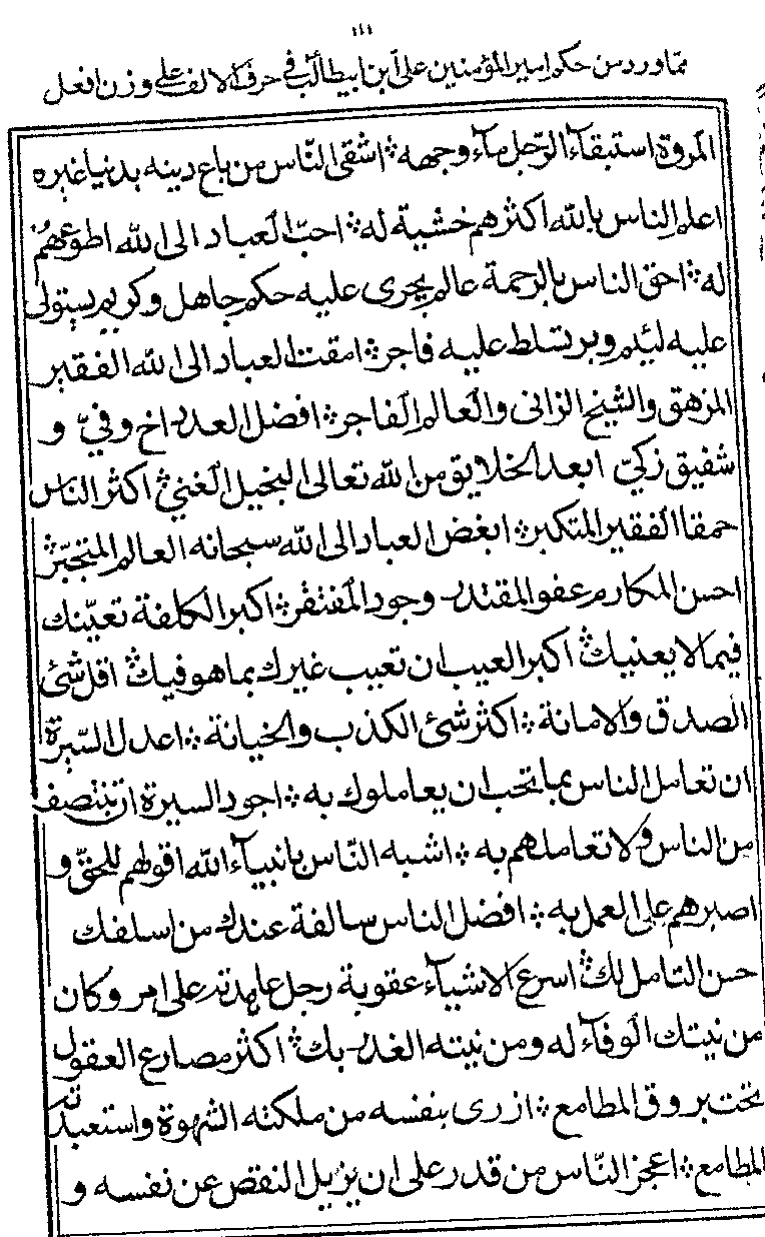 ١١١
مما ورد من حكم امير المؤمنين على ابن ابيطالب في حرف الالف على وزن افعل
المروة استبقاء الرجل ماء وجهه اشقى الناس من باع دينه بدنيا غيره
اعلم الناس بالله اكثرهم خشية له احب العباد الى الله اطوعهم
له احق الناس بالرحمة عالم يجرى عليه حكم جاهل وكريم يستولى
عليه لئيم وبر تسلط عليه فاجر امقت العباد الى الله الفقير
المزهو والشيخ الزانى والعالم الفاجر افضل العدد اخ وفيّ و
شفيق زكيّ ابعد الخلايق من الله تعالى البخيل الغني اكثر الناس
حمقا الفقير المتكبر ابغض العباد الى الله سبحانه العالم المتجبّر
احسن المكارم عفو المقتدر وجود المفتقر اكبر الكلفة تعنيك
فيما لا يعنيك اكبر العيب ان تعيب غيرك بما هو فيك اقل شئ
الصدق والامانة اكثر شئ الكذب والخيانة اعدل السيرة
ان تعامل الناس بما تحب ان يعاملوك به اجود السيرة ان تنتصف
من الناس ولا تعاملهم به اشبه الناس بانبياء الله اقولهم للحق و
اصبرهم على العمل به افضل الناس سالفة عندك من اسلفك
حسن التامل لك اسرع الاشياء عقوبة رجل عاهدته على امر وكان
من نيتك الوفاء له ومن نيته الغدر بك اكثر مصارع العقول
تحت بروق المطامع ازرى بنفسه من ملكته الشهوة واستعبدته
المطامع اعجز الناس من قدر على ان يزيل النقص عن نفسه و